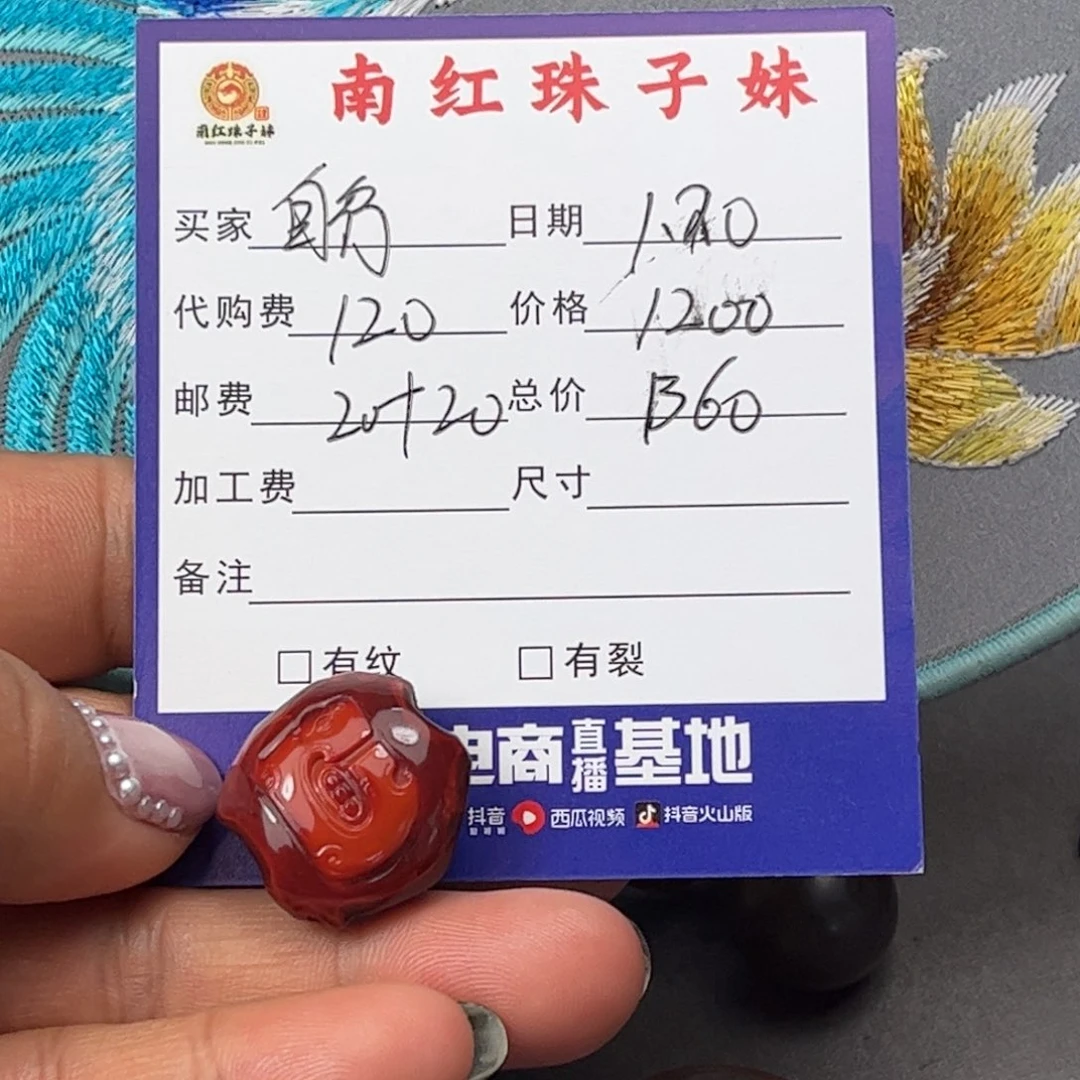 南红珠子妹
南红珠子妹
买家 日期
代购费 120 价格 1200
邮费 20+20 总价 1360
加工费 尺寸
备注
□ 有纹 □ 有裂
电商直播基地
抖音 西瓜视频 抖音火山版